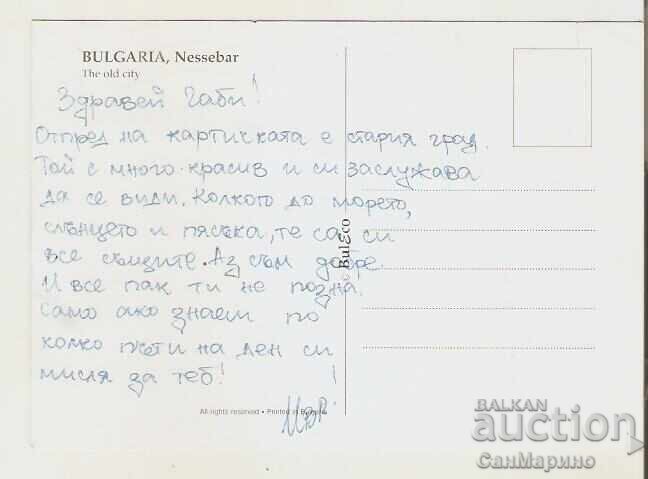 BULGARIA, Nessebar
The old city
Здравей Габи!
Отпред на картичката е стария град.
Той е много красив и си заслужава
да се види. Колкото до морето,
слънцето и пясъка, те са си
все същите. Аз съм добре.
И все пак ти не позна.
Само ако знаеш по
колко пъти на ден си
мисля за теб!
© BulEco
All rights reserved • Printed in Bulgaria
BALKAN
auction
СанМарино